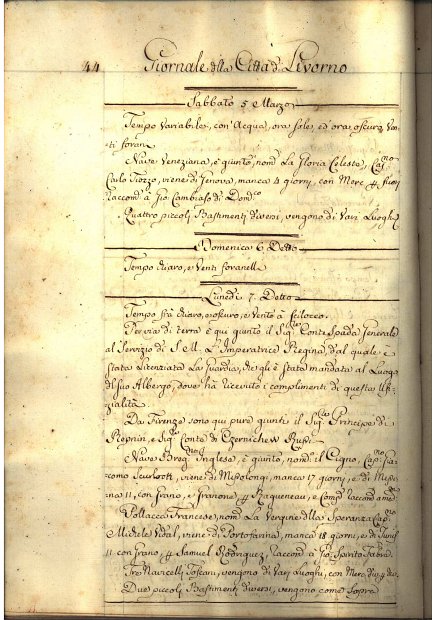 44 Giornale della Città di Livorno
Sabbato 5 Marzo
Tempo Variabile, con Acqua, ora Sole, ed ora oscuro, Ven-
ti foran
Nave Veneziana, è giunto, nom La Gloria Celeste, Capno
Carlo Tiozzo, viene di Genova, manca 4 giorni, con Merc
Raccom a Gio Cambiaso di Domco
Quattro piccoli Bastimenti diversi, vengono di Vari Luoghi
Domenica 6 Detto
Tempo chiaro, e Venti foranelli
Lunedì 7. Detto
Tempo frà chiaro, e oscuro, e Vento à Scilocco.
Per via di terra è qui giunto il Sige Conte Spada Generale
al Servizio di S M L'Imperatrice Regina, dal quale è
Stata Licenziata La Guardia, che gli è Stata mandata al Luogo
del suo Albergo, dove hà ricevuto i complimenti di questa Ufi-
zialità.
Da Firenze sono qui pure giunti il Sige Principe di
Repnin, e Sige Conte di Czernichew Russi
Nave Inglese, è giunto, nom il Cigno, Capno Gia-
como Scurlock, viene di Missolongi, manca 17 giorni, e di Messi-
na 11, con Grano, e Fravone, Raqueneau, e Compi
Pollacca Francese, nom La Vergine della Speranza, Capno
Michele Vidal, viene di Portofarina, manca 18 giorni, e di Tunisi
11 con Grano, Samuel Rodriguez, Raccom a Gio Spirito
Tre Navicelli Toscani, vengono di Vari Luoghi, con Merc
Due piccoli Bastimenti diversi, vengono come Sopra